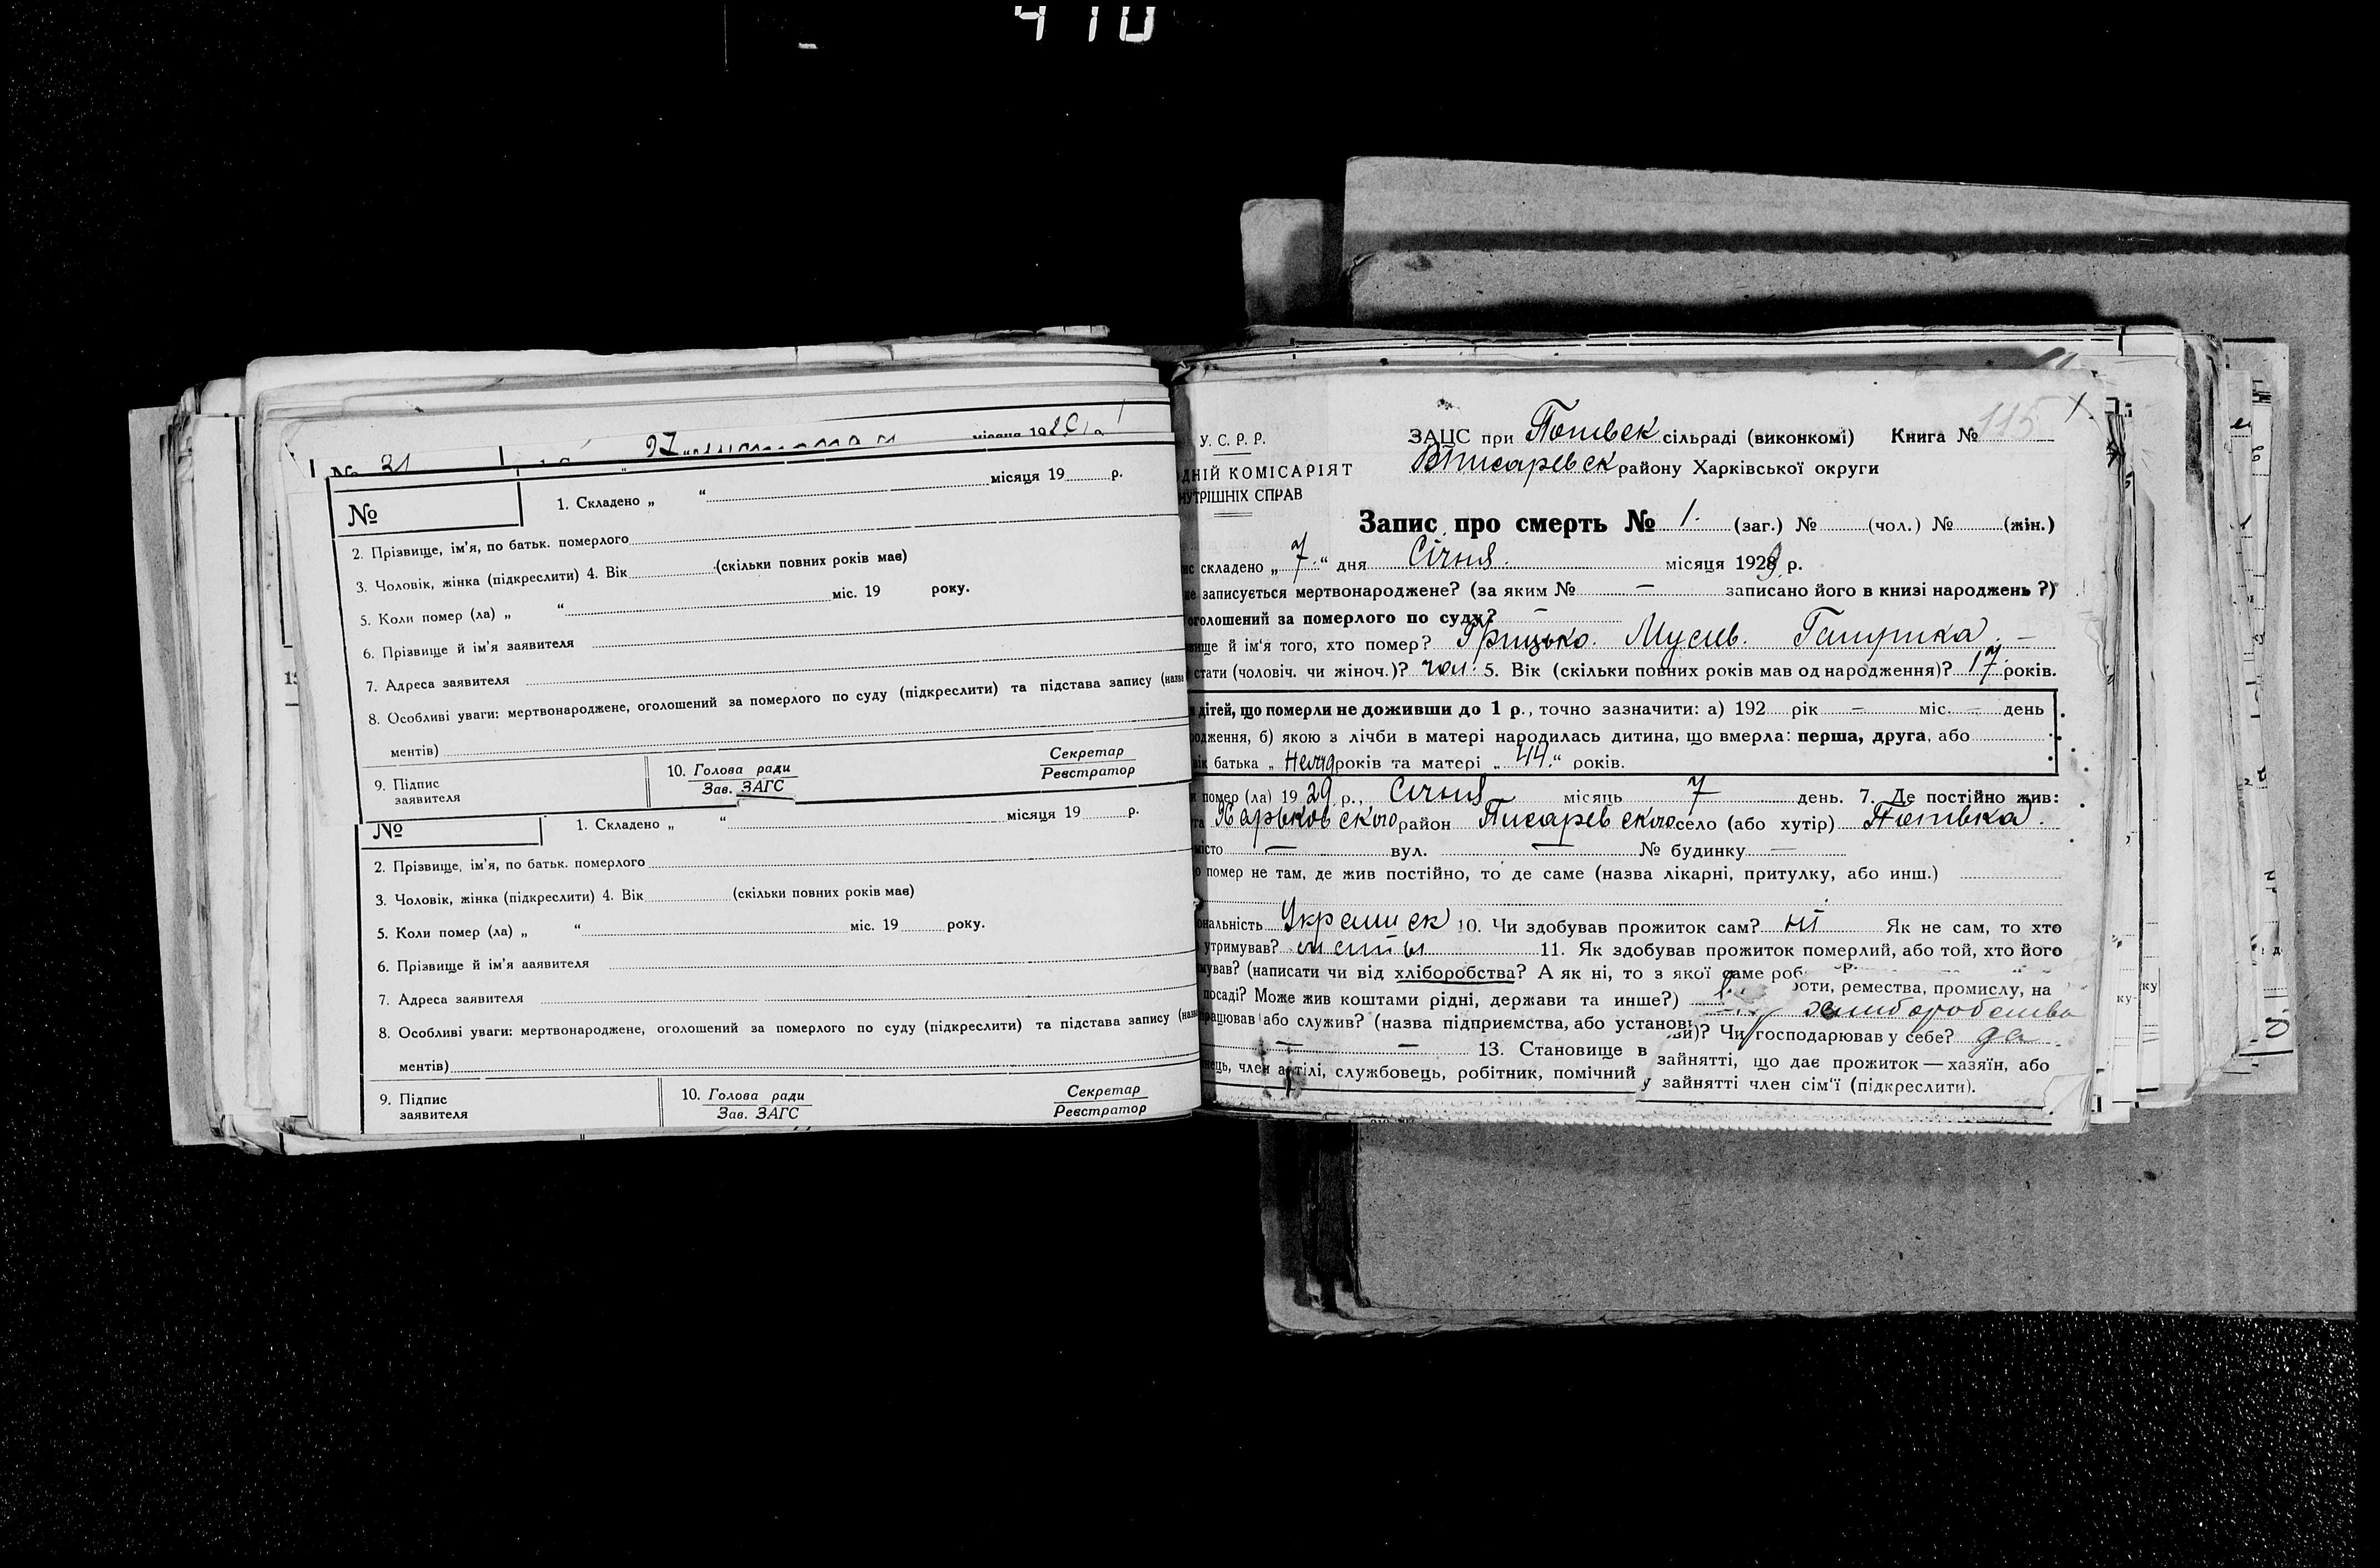 410
№ 21
місяця 192
№
1. Складено „ “ місяця 19 р.
2. Прізвище, ім'я, по батьк. померлого
3. Чоловік, жінка (підкреслити) 4. Вік (скільки повних років має)
5. Коли помер (ла) „ “ міс. 19 року.
6. Прізвище й ім'я заявителя
7. Адреса заявителя
8. Особливі уваги: мертвонароджене, оголошений за померлого по суду (підкреслити) та підстава запису (назва
ментів)
9. Підпис заявителя
10. Голова ради
Зав. ЗАГС
Секретар
Реєстратор
№
1. Складено „ “ місяця 19 р.
2. Прізвище, ім'я, по батьк. померлого
3. Чоловік, жінка (підкреслити) 4. Вік (скільки повних років має)
5. Коли помер (ла) „ “ міс. 19 року.
6. Прізвище й ім'я аявителя
7. Адреса заявителя
8. Особливі уваги: мертвонароджене, оголошений за померлого по суду (підкреслити) та підстава запису (назва
ментів)
9. Підпис заявителя
10. Голова ради
Зав. ЗАГС
Секретар
Реєстратор
У. С. Р. Р.
ДНІЙ КОМІСАРІЯТ
НУТРІШНІХ СПРАВ
115
ЗАЦС при сільраді (виконкомі) Книга №
району Харківської округи
Запис про смерть № 1. (заг.) № (чол.) № (жін.)
складено „7.“ дня Січня. місяця 1929 р.
записується мертвонароджене? (за яким № — записано його в книзі народжень?)
оголошений за померлого по суду? —
вище й ім'я того, хто помер? Грицько. Мусив.
стати (чоловіч. чи жіноч.)? чол: 5. Вік (скільки повних років мав од народження)? 17 років.
дітей, що померли не доживши до 1 р., точно зазначити: а) 192 рік — міс. — день
родження, б) якою з лічби в матері народилась дитина, що вмерла: перша, друга, або
вік батька „ років та матері „ 44.“ років.
помер (ла) 1929 р., Січня місяць 7 день. 7. Де постійно жив:
Харьковского район Писаревского село (або хутір)
місто — вул. — № будинку —
помер не там, де жив постійно, то де саме (назва лікарні, притулку, або инш.)
ональність 10. Чи здобував прожиток сам? ні Як не сам, то хто
утримував? 11. Як здобував прожиток померлий, або той, хто його
мував? (написати чи від хліборобства? А як ні, то з якої саме роб
оти, ремества, промислу, на
посаді? Може жив коштами рідні, держави та инше?)
працював або служив? (назва підприємства, або установи)? Чи господарював у себе? да
— — 13. Становище в зайнятті, що дає прожиток — хазяїн, або
нець, член артілі, службовець, робітник, помічний у зайнятті член сім'ї (підкреслити).